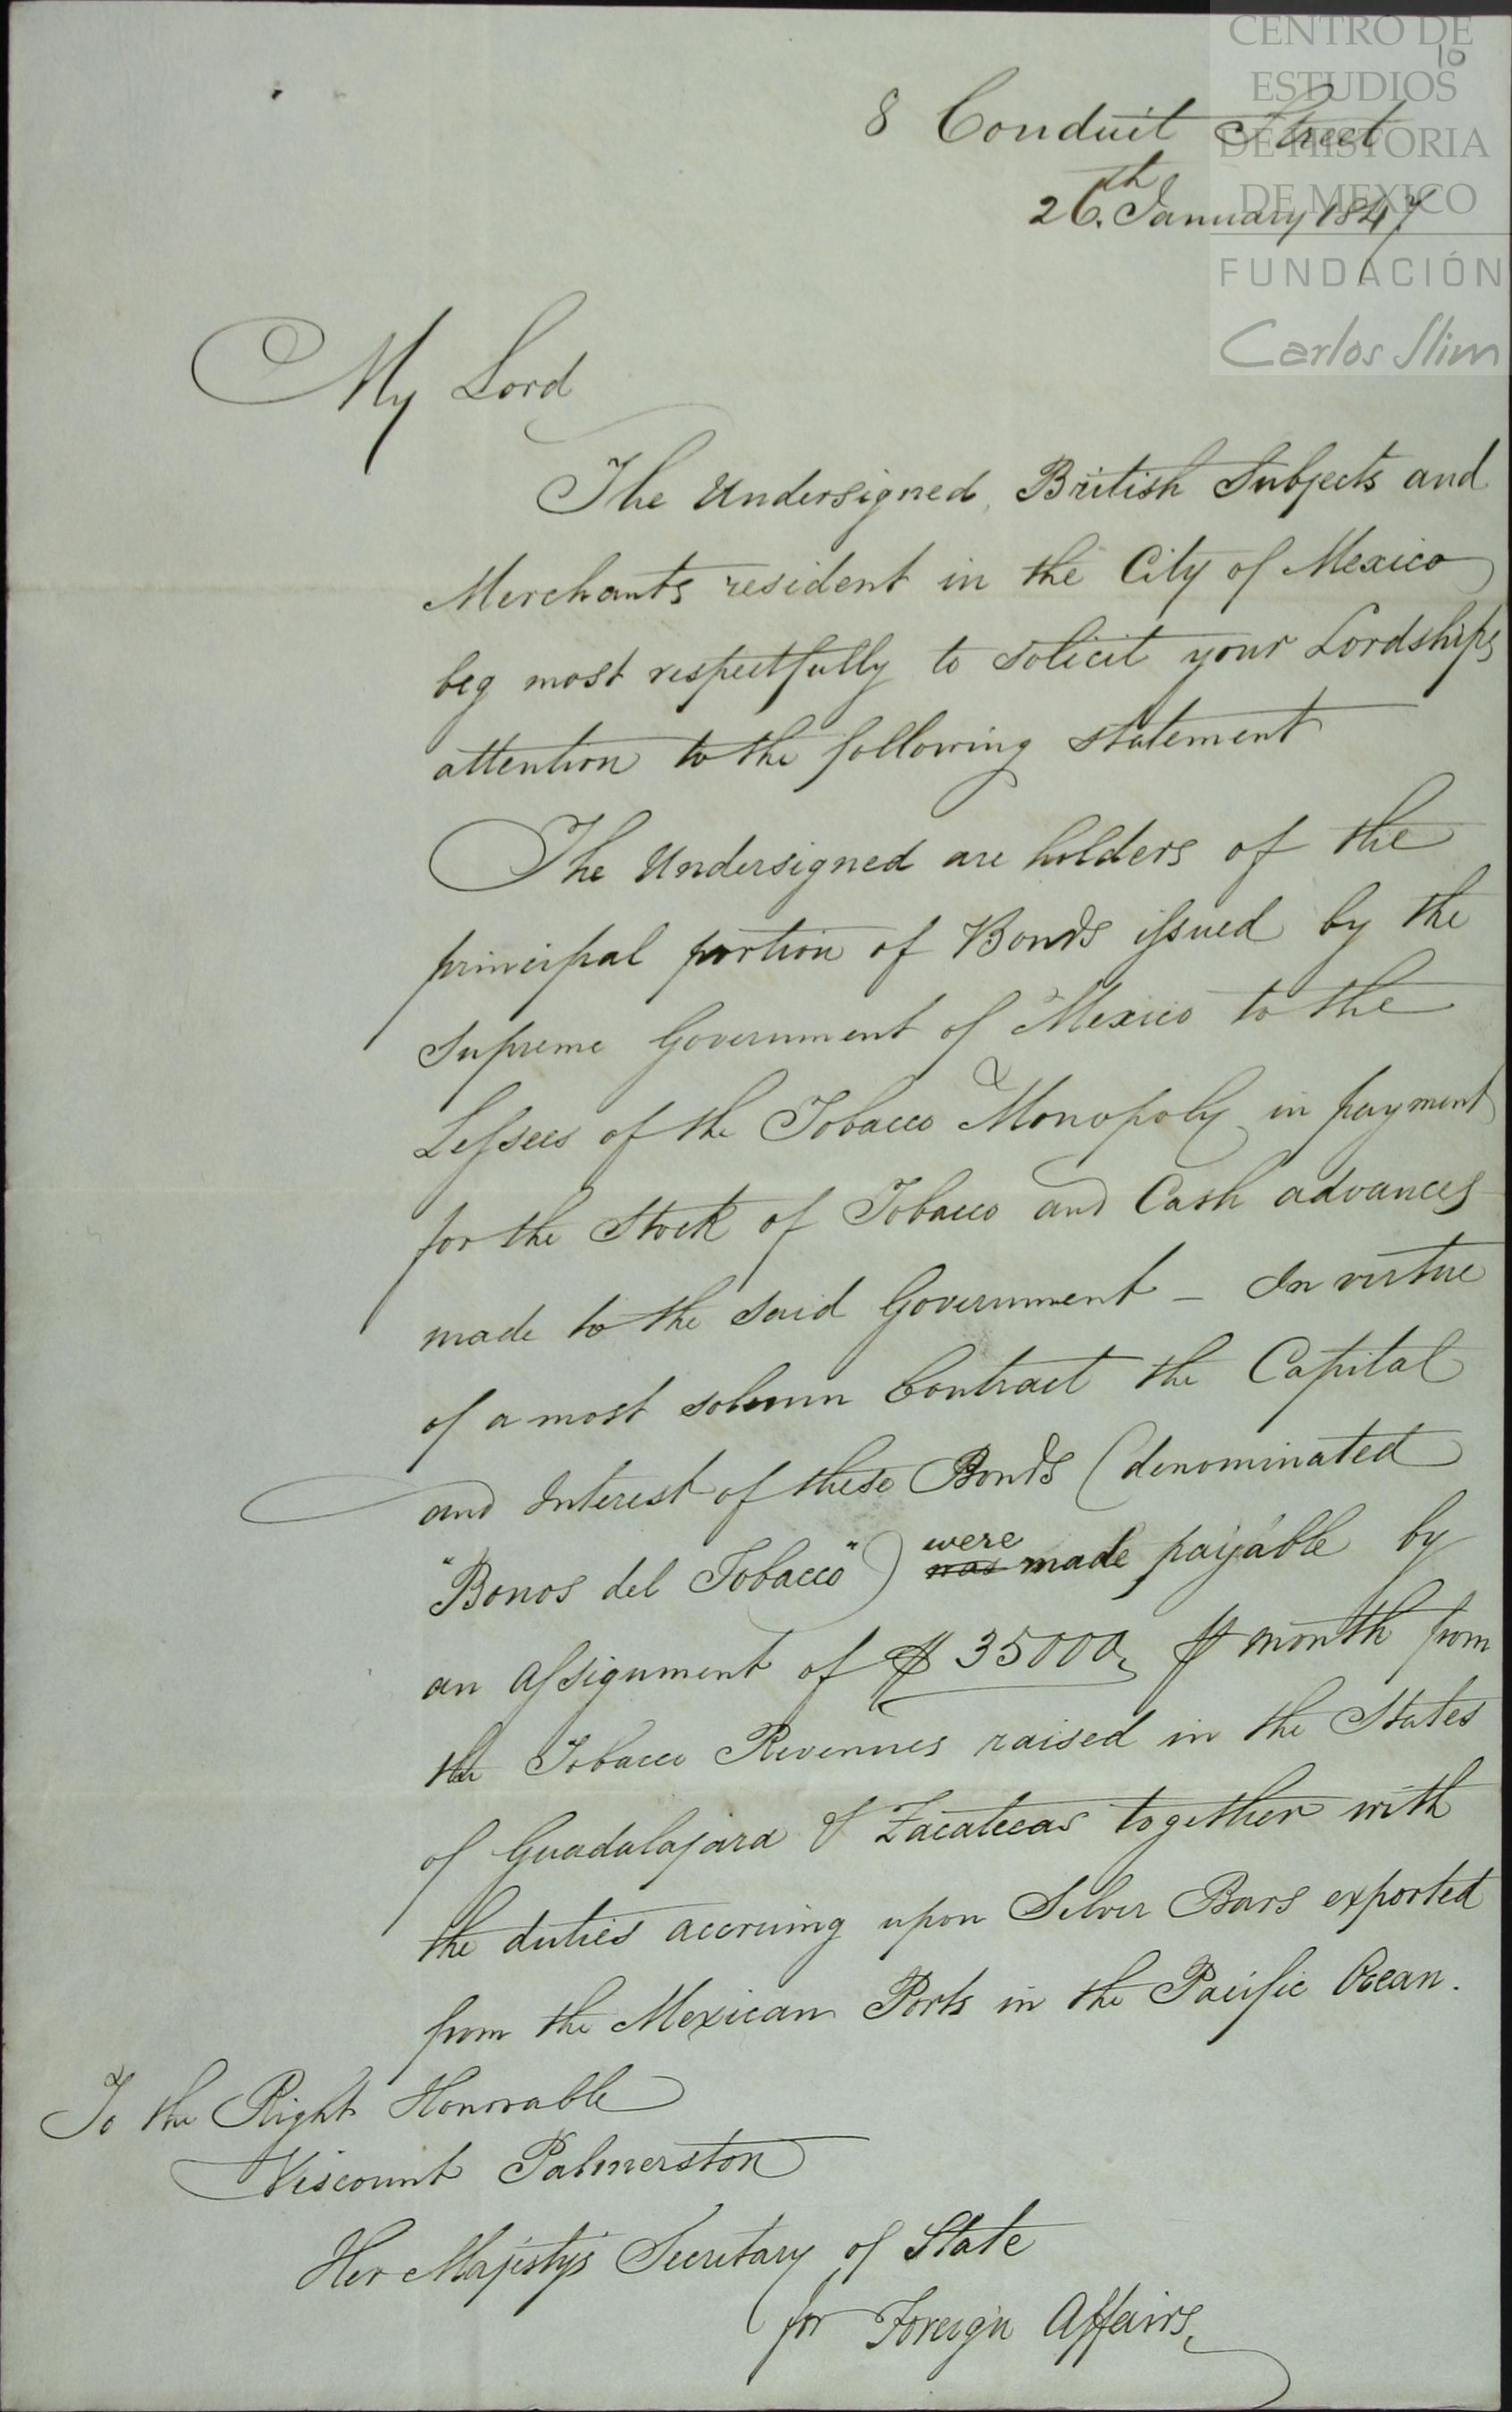 CENTRO DE
ESTUDIOS
DE HISTORIA
DE MEXICO
FUNDACIÓN
Carlos Slim
10
8 Conduit Street
26.th January 1847
My Lord
The Undersigned, British Subjects and
Merchants resident in the City of Mexico
beg most respectfully to solicit your Lordships
attention to the following statement
The Undersigned are holders of the
principal portion of Bonds issued by the
Supreme Government of Mexico to the
Lessees of the Tobacco Monopoly in payment
for the Stock of Tobacco and Cash advances
made to the said Government – In virtue
of a most solemn Contract the Capital
and Interest of these Bonds (denominated
"Bonos del Tobacco") were was made payable by
an assignment of $ 35000, ⅌ month from
the Tobacco Revenues raised in the States
of Guadalajara & Zacatecas together with
the duties accruing upon Silver Bars exported
from the Mexican Ports in the Pacific Ocean.
To the Right Honorable
Viscount Palmerston
Her Majestys Secretary of State
for Foreign Affairs,